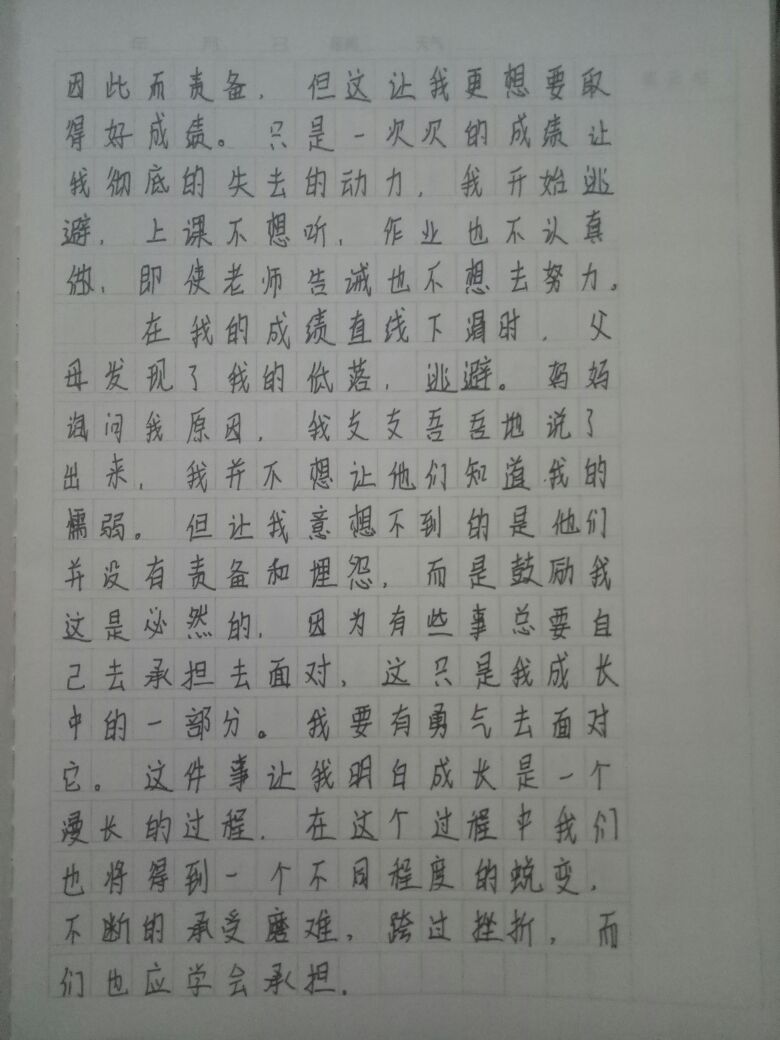 因此而责备，但这让我更想要取
得好成绩。只是一次次的成绩让
我彻底的失去的动力，我开始逃
避，上课不想听，作业也不认真
做，即使老师告诫也不想去努力。
在我的成绩直线下滑时，父
母发现了我的低落，逃避。妈妈
询问我原因，我支支吾吾地说了
出来，我并不想让他们知道我的
懦弱。但让我意想不到的是他们
并没有责备和埋怨，而是鼓励我
这是必然的，因为有些事总要自
己去承担去面对，这只是我成长
中的一部分。我要有勇气去面对
它。这件事让我明白成长是一个
漫长的过程，在这个过程中我们
也将得到一个不同程度的蜕变，
不断的承受磨难，跨过挫折，而
们也应学会承担.